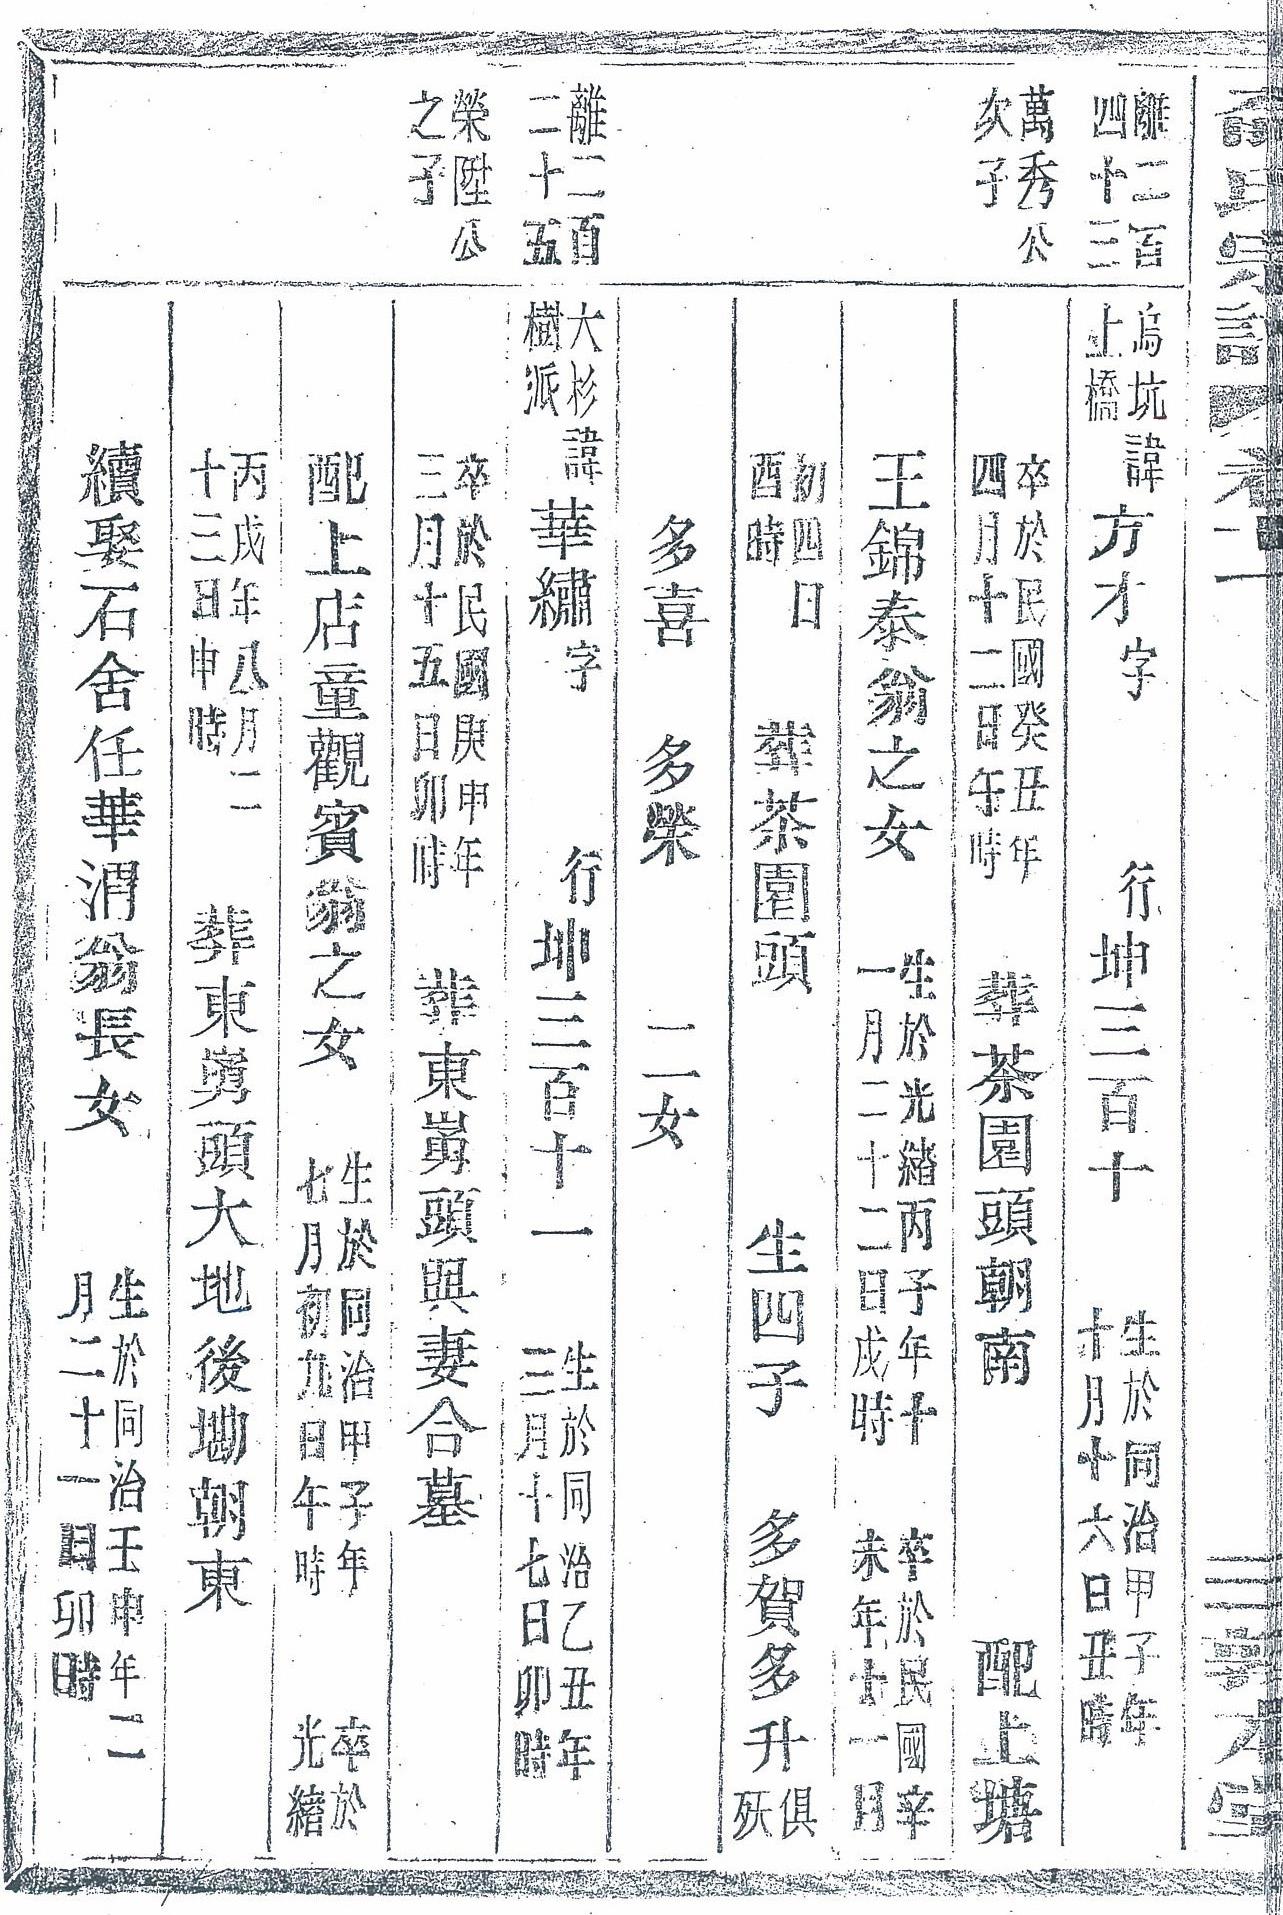 氏宗譜
卷一
敦本堂
離二百
四十三
烏坑
上橋
諱方才字 行坤三百十 生於同治甲子年
十月十六日丑時
萬秀公
次子
卒於民國癸丑年
四月十二日午時 葬茶園頭朝南 配上塘
王錦泰翁之女 生於光緒丙子年十
一月二十二日戌時 卒於民國辛
未年十一月
初四日
酉時 葬茶園頭 生四子 多賀多升俱
殀
多喜 多榮 二女
離二百
二十五
大杉
樹派
諱華繡字 行坤三百十一 生於同治乙丑年
三月十七日卯時
榮陞公
之子
卒於民國庚申年
三月十五日卯時 葬東嶲頭與妻合墓
配上店童觀賓翁之女 生於同治甲子年
七月初九日午時 卒於
光緒
丙戌年八月二
十三日申時 葬東嶲頭大地後墈朝東
續娶石舍任華渭翁長女 生於同治壬申年二
月二十一日卯時